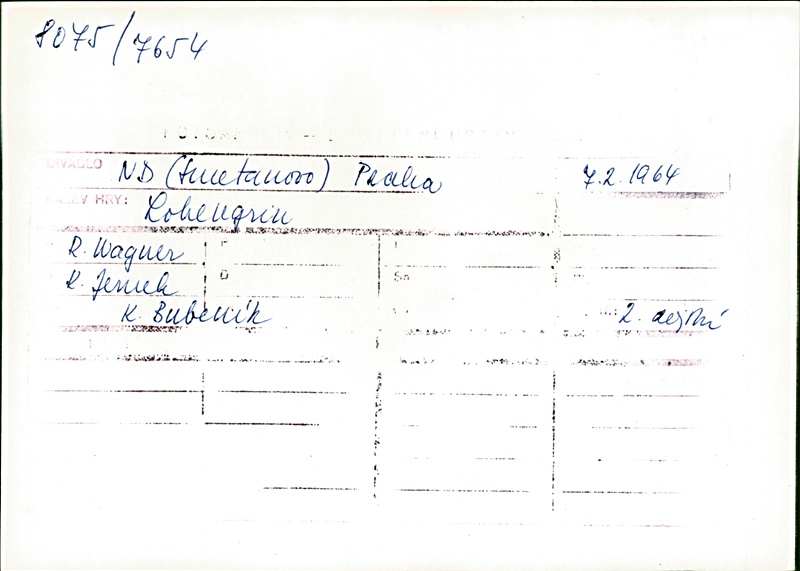 8075/7654
DIVADLO ND (Smetanovo) Praha 7.2.1964
HRY: Lohengrin
R. Wagner
R. Jernek
K. Bubeník 2. dějství